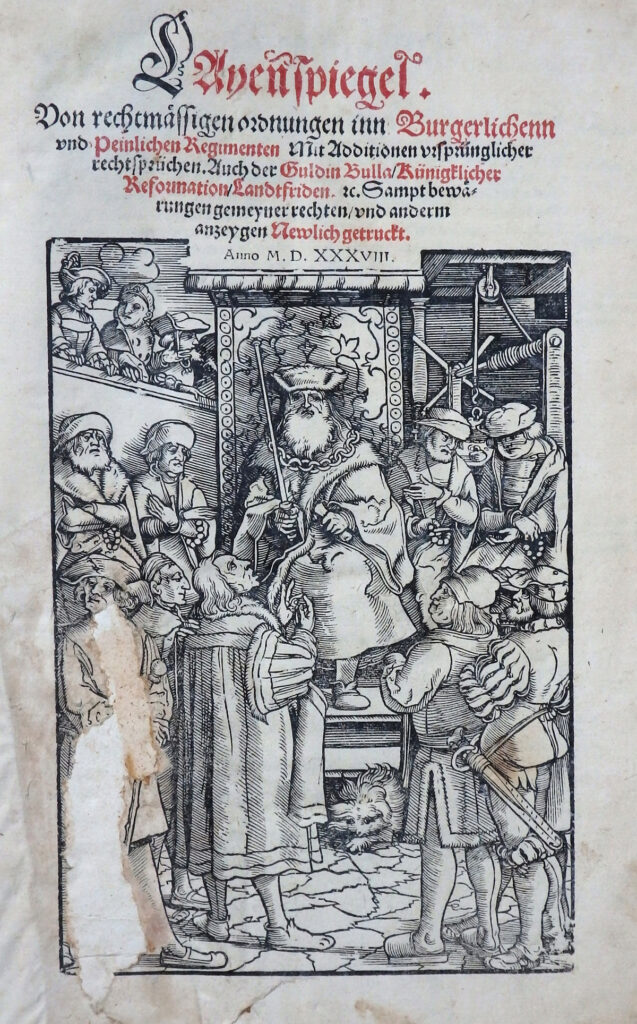 LAyeñspiegel.
Von rechtmässigen ordnungen inn Burgerlichenn
vnd Peinlichen Regimenten Mit Additionen vrsprünglicher
rechtsprüchen. Auch der Guldin Bulla/Künigklicher
Reformation/Landtfriden. ꝛc. Sampt bewä-
rungen gemeyner rechten/vnd anderm
anzeygen Newlich getruckt.
Anno M. D. XXXVIII.